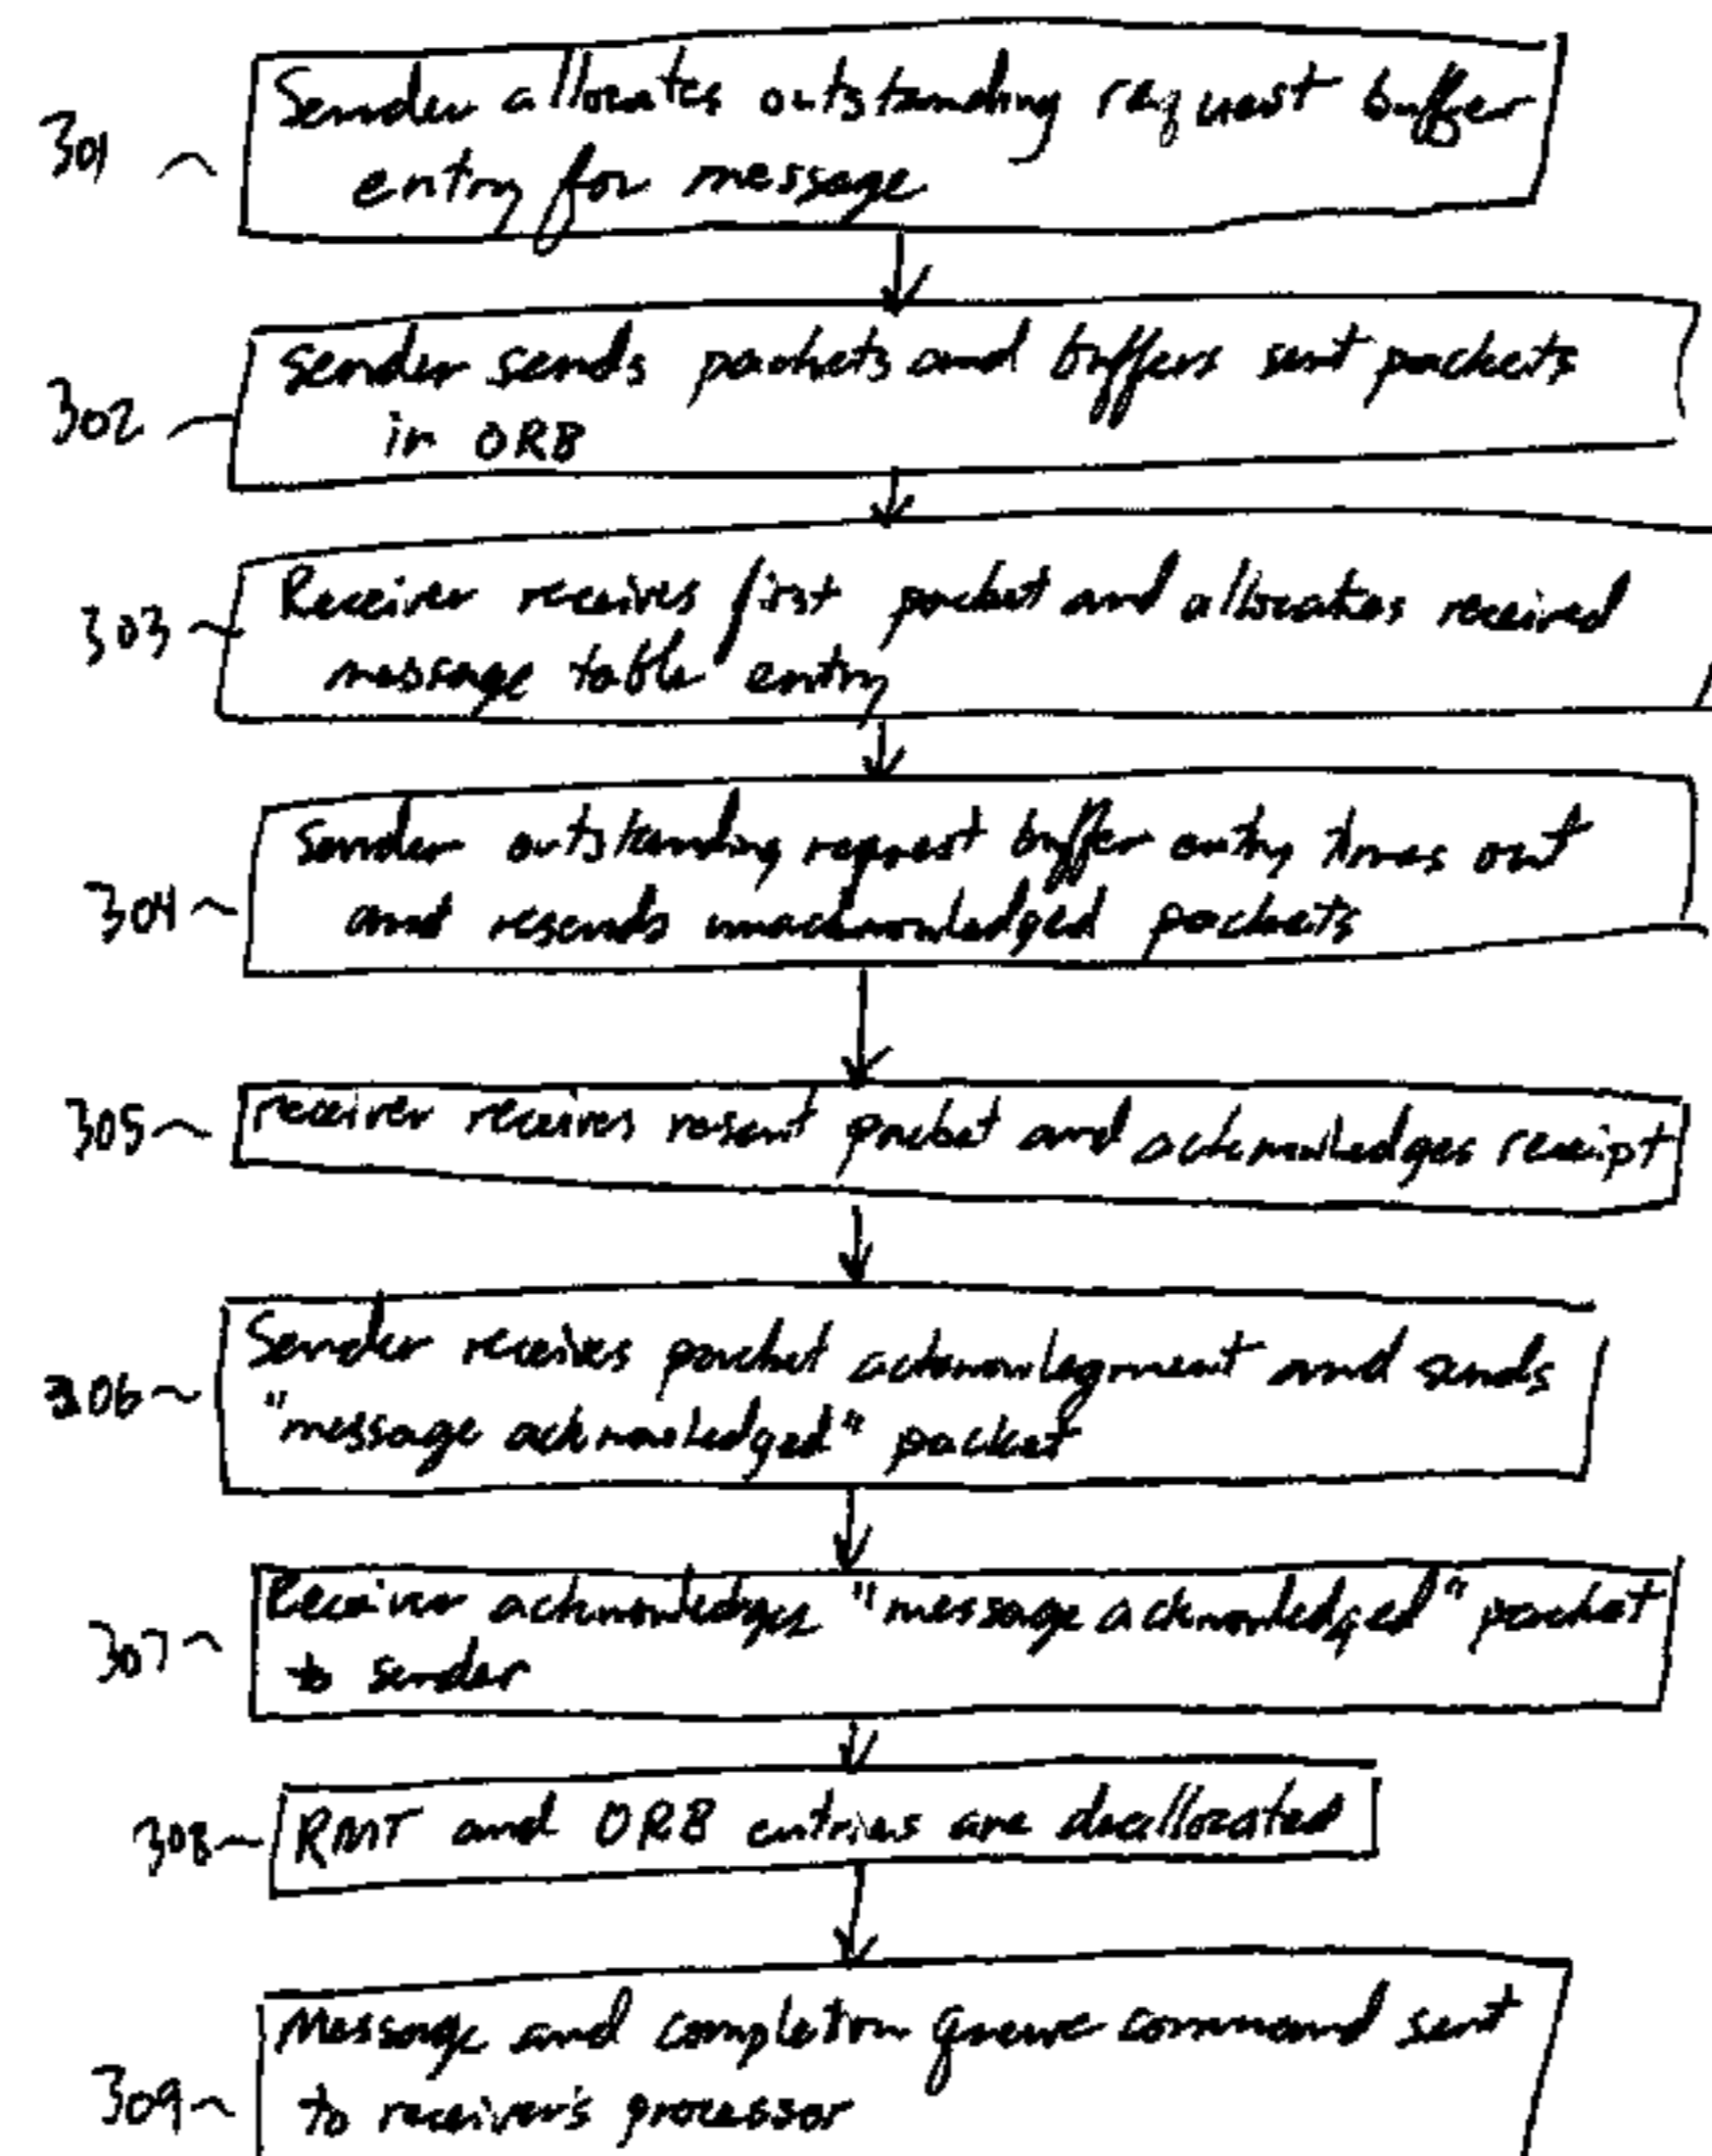 301 Sender allocates outstanding request buffer
entry for message
302 Sender sends packets and buffers sent packets
in ORB
303 Receiver receives first packet and allocates received
message table entry
304 Sender outstanding request buffer entry times out
and resends unacknowledged packets
305 receiver receives resent packet and acknowledges receipt
306 Sender receives packet acknowlegment and sends
"message acknowledged" packet
307 Receiver acknowledges "message acknowledged" packet
to sender
308 RMT and ORB entries are deallocated
309 Message and completion queue command sent
to receiver's processor